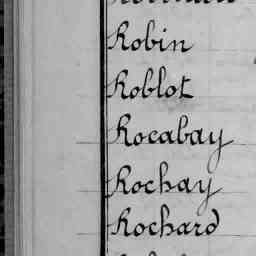 Robin
Roblot
Rocabay
Rochay
Rochard